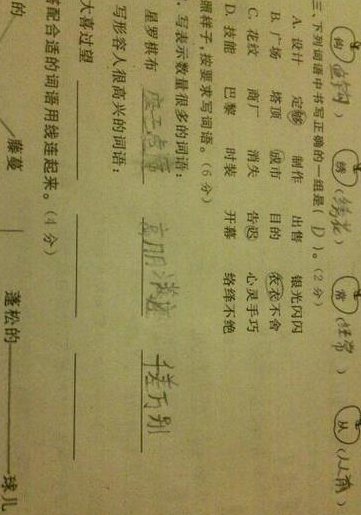 (鱼钩) 绣(绣花) 常(经常) 从(从前)
三、下列词语中书写正确的一组是( D )。(2分)
A. 设计 定够 制作 出售 银光闪闪
B. 广场 塔顶 诚市 目的 衣衣不舍
C. 花纹 商厂 消失 告迟 心灵手巧
D. 技能 巴黎 时装 开幕 络绎不绝
照样子,按要求写词语。(6分)
、写表示数量很多的词语:
星罗棋布 高朋满座 千差万别
写形容人很高兴的词语:
大喜过望
配合适的词语用线连起来。(4分)
的 藤蔓 蓬松的 球儿